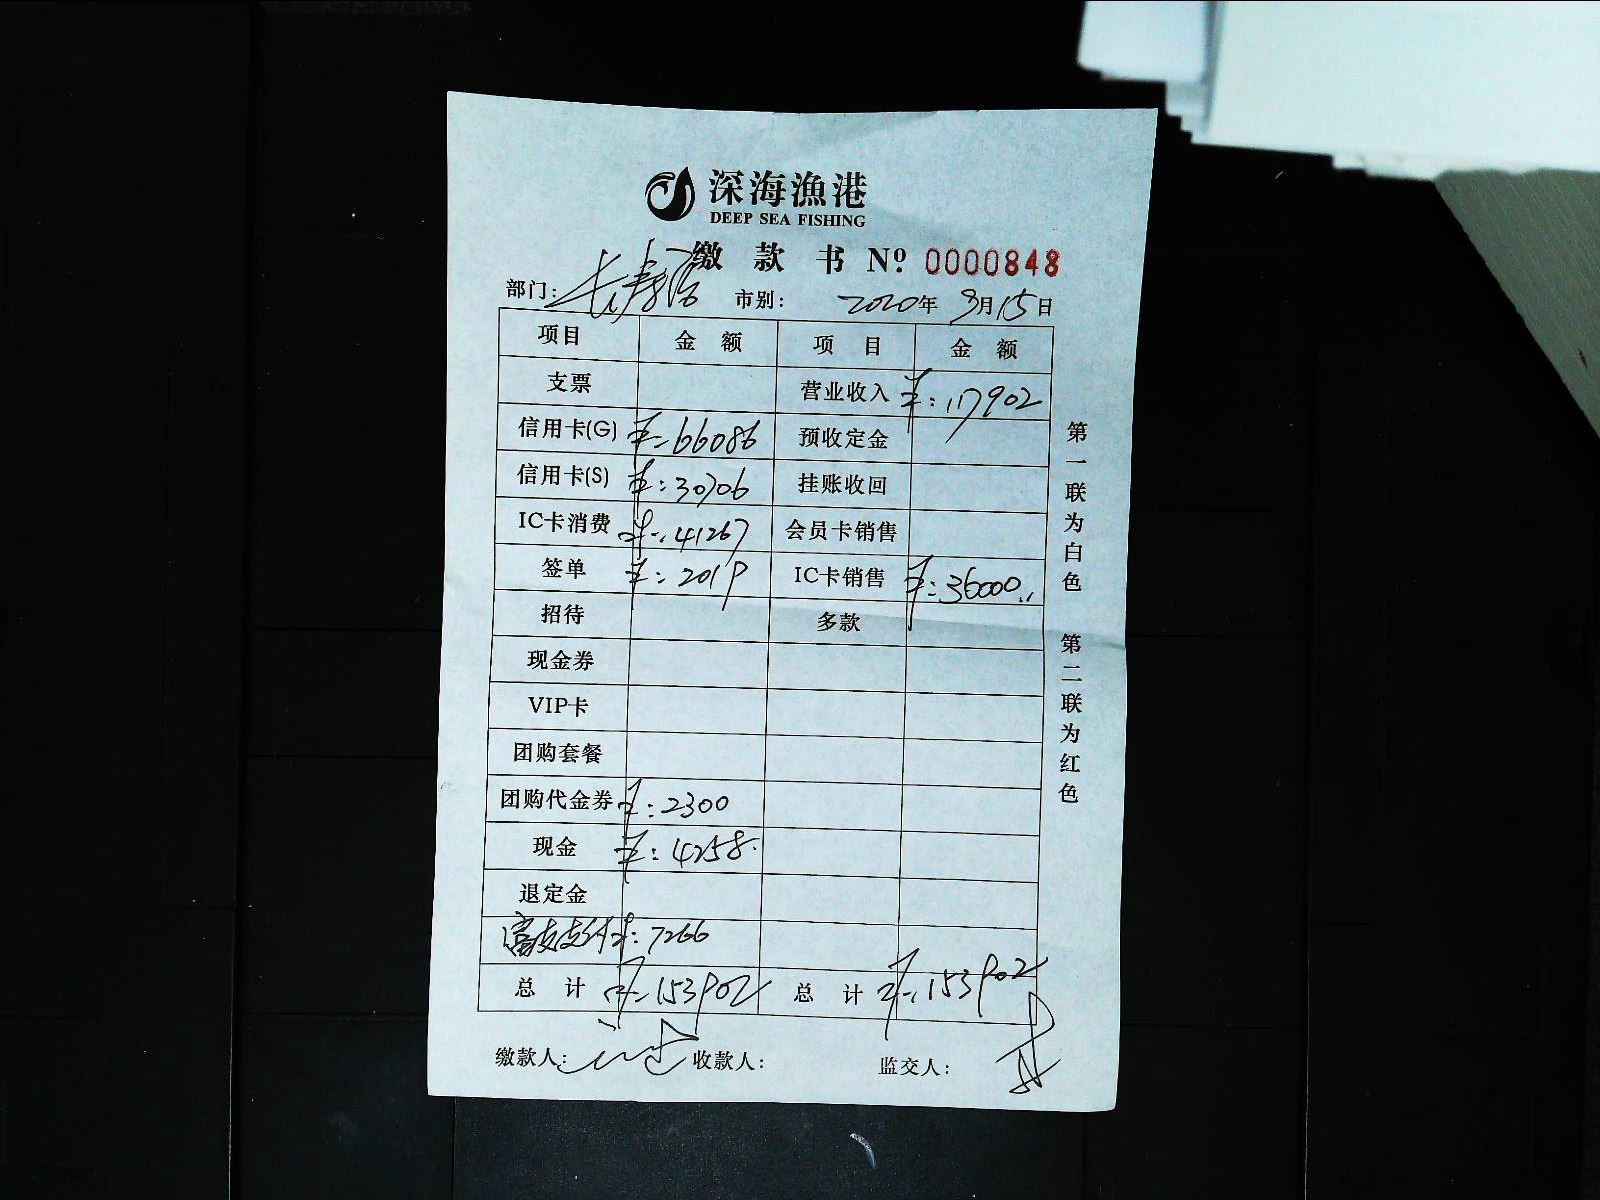 深海渔港
DEEP SEA FISHING
缴 款 书 Nº 0000848
部门：长寿路 市别： 2020年 9月15日
项目 金 额 项 目 金 额
支票 营业收入 ¥：117902
信用卡(G) ¥：66086 预收定金
信用卡(S) ¥：30706 挂账收回
IC卡消费 ¥：41267 会员卡销售
签单 ¥：2019 IC卡销售 ¥：36000
招待 多款
现金券
VIP卡
团购套餐
团购代金券 ¥：2300
现金 ¥：4258
退定金
富友支付 ¥：7266
总 计 ¥：153902 总 计 ¥：153902
缴款人： 收款人： 监交人：
第一联为白色 第二联为红色